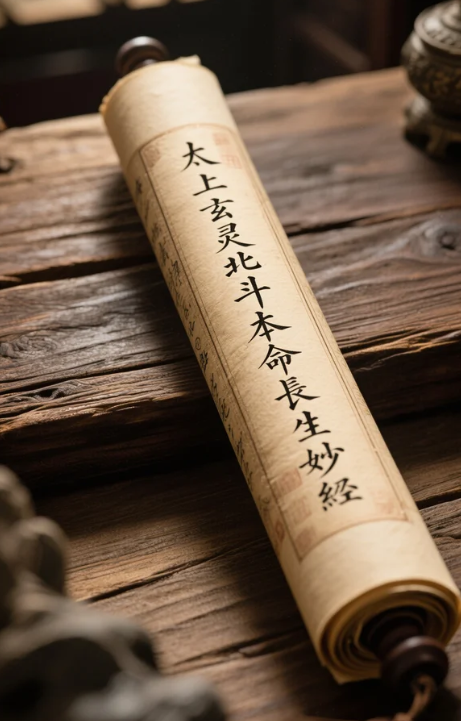 太上玄灵北斗本命長生妙経